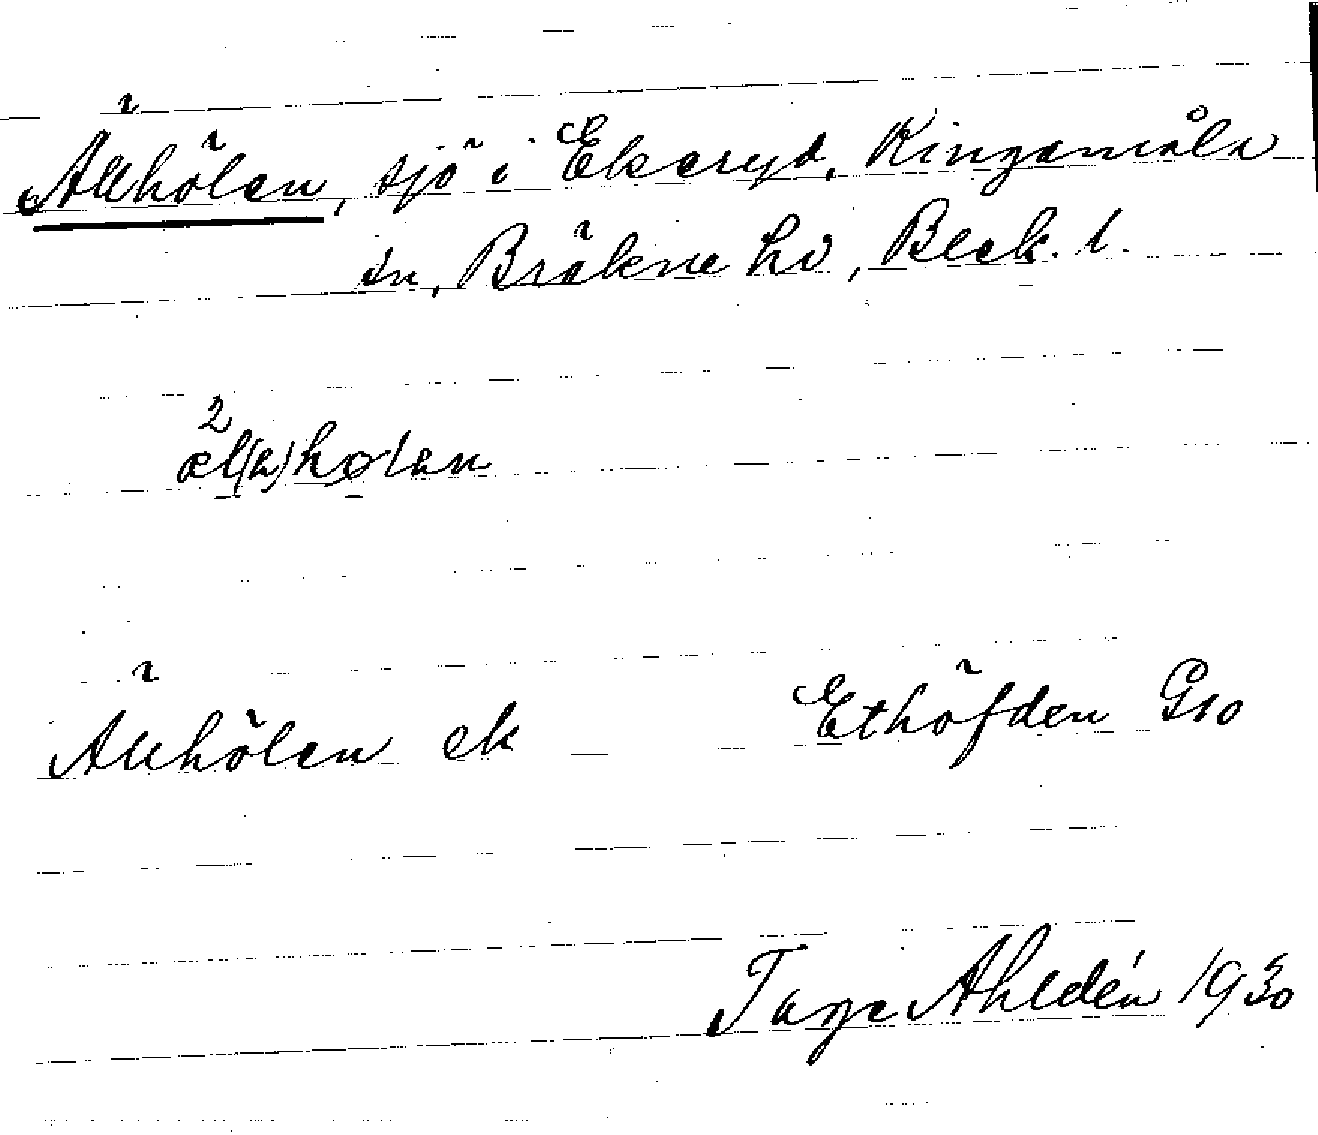 Älehölen, sjö i Ekeryd, Ringamåla
sn, Bräkne hd, Blek. l.
2
æl(ə)hølən
Älehölen ek Ethöfden Gso
Tage Ahldén 1930